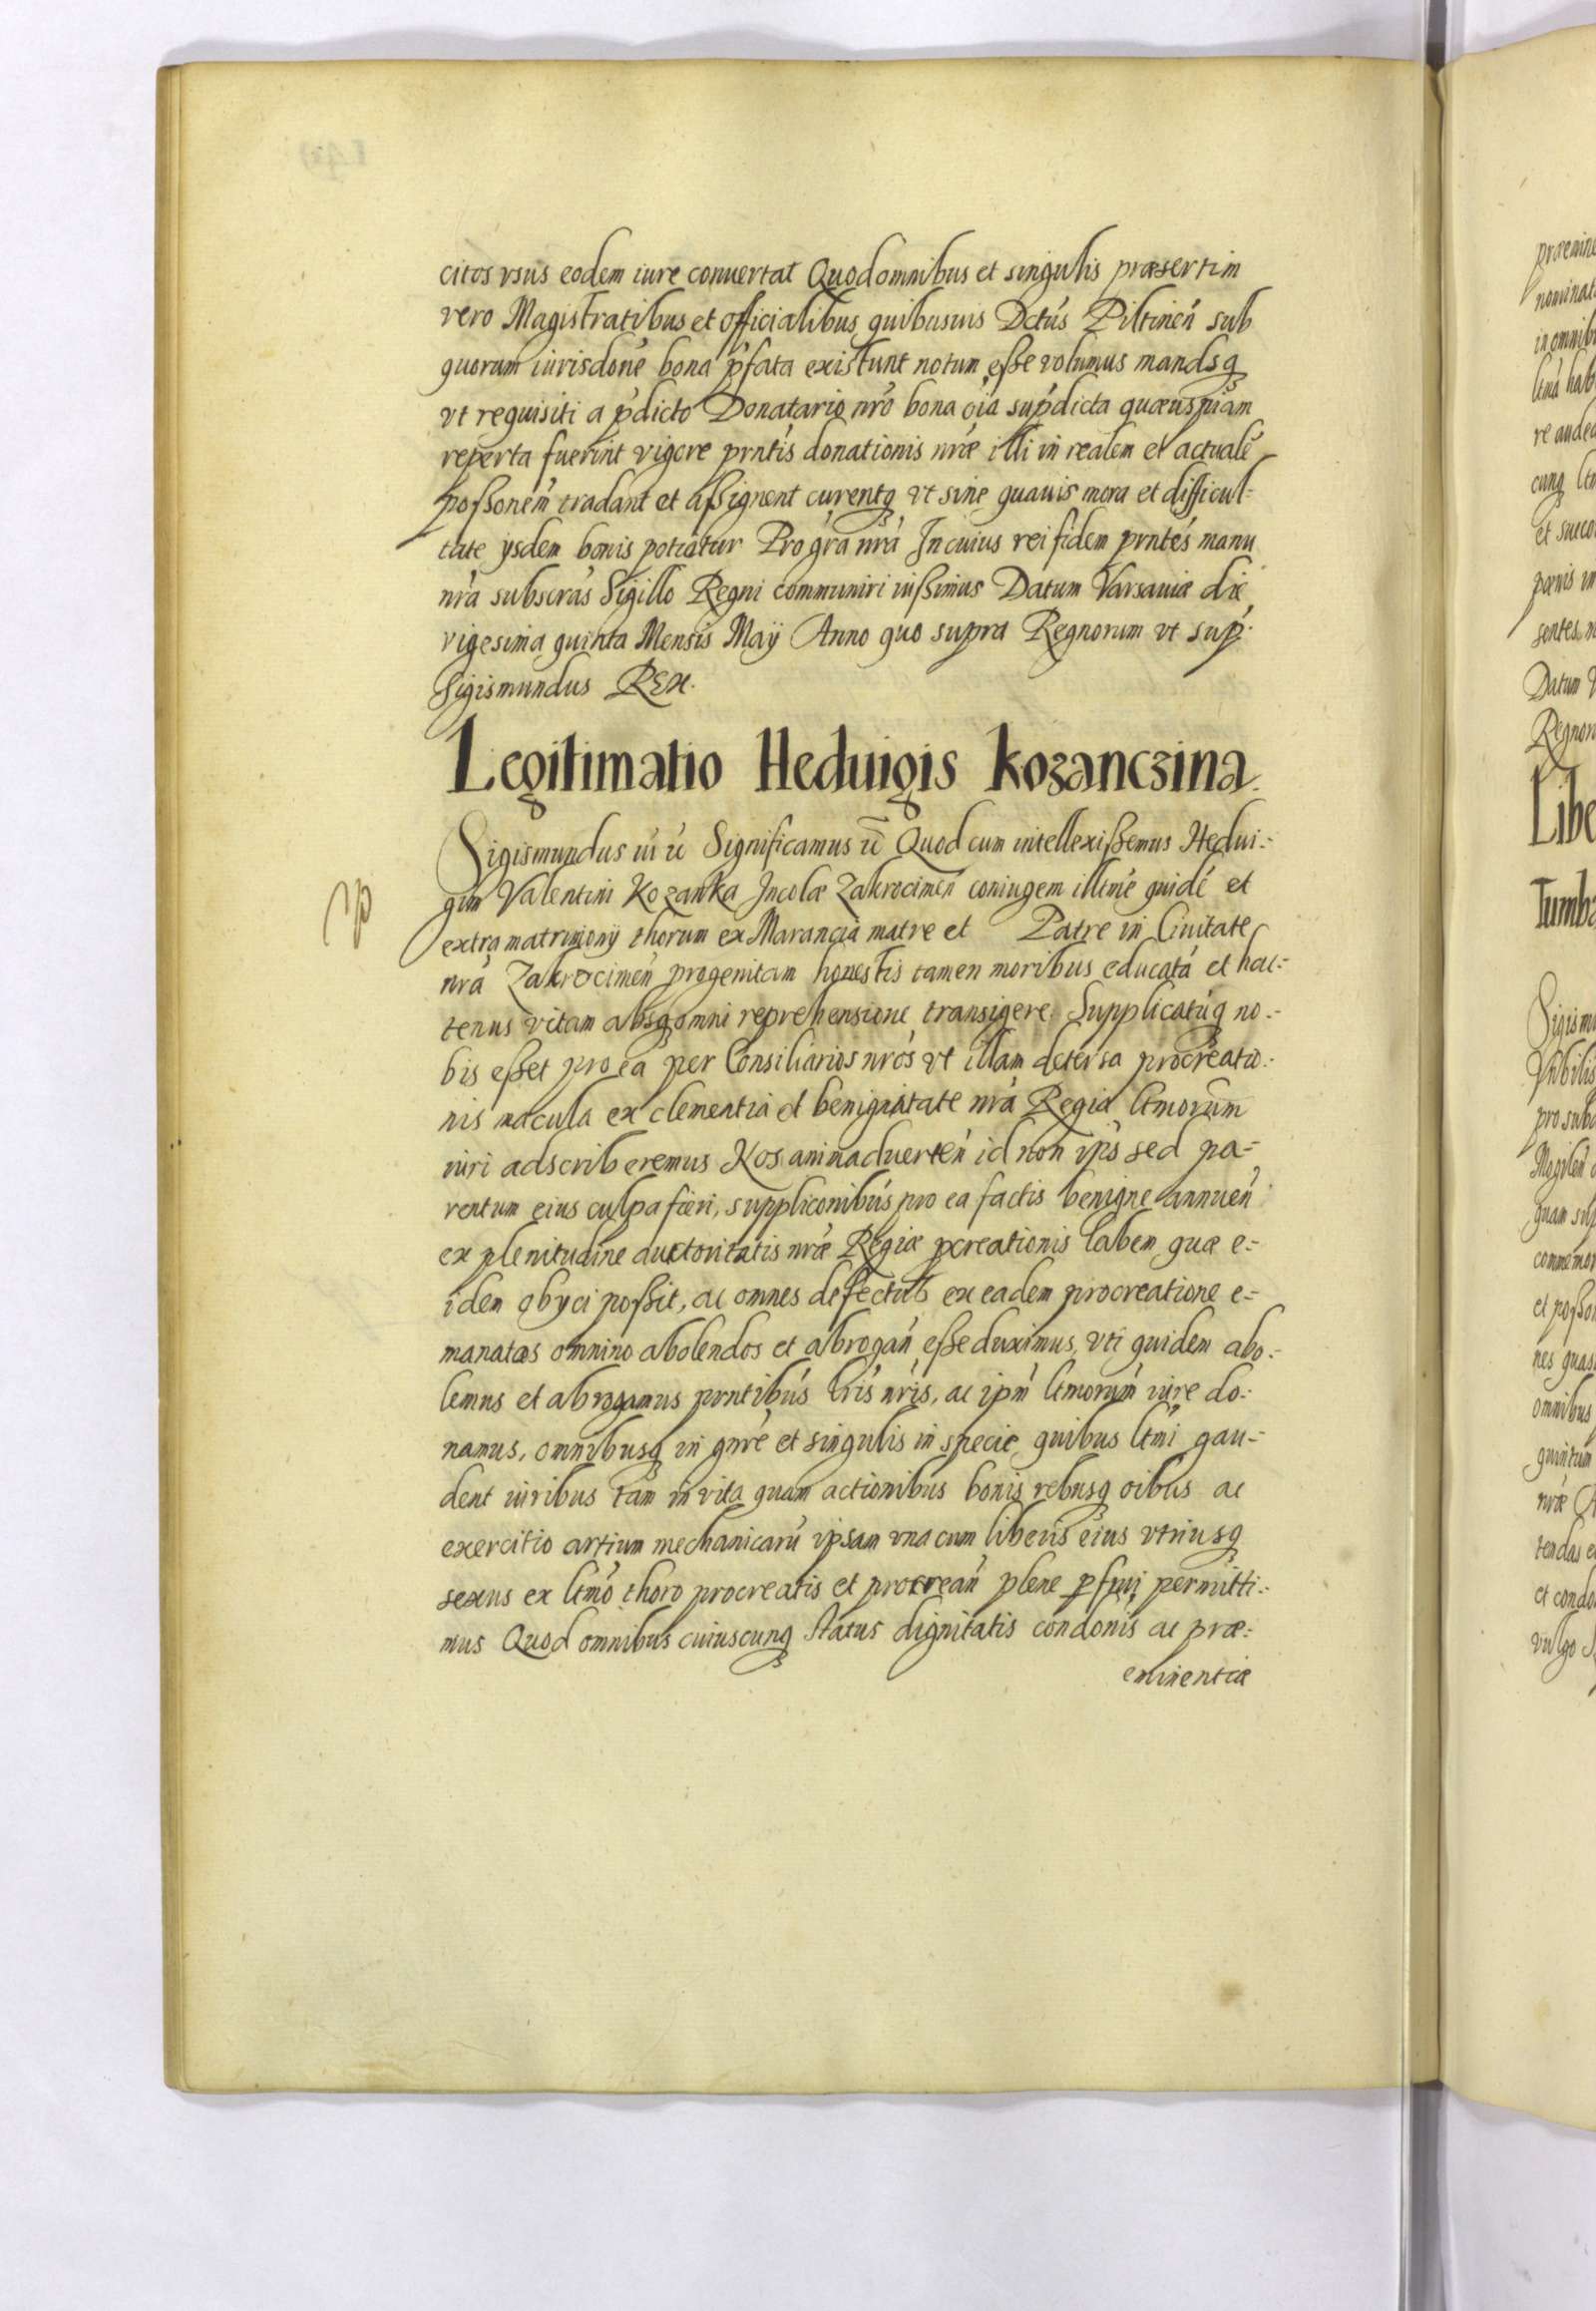 citos vsus eodem iure conuertat Quod omnibus et singulis præsertim
vero Magistratibus et officialibus quibusuis Dctús Piltinen̄ sub
quorum iurisdone bona p̄fata existunt notum eſse volumus mandsq
vt requisiti a p̄dicto Donatario nr̄o bona oīa sup̄dicta quæuspiam
reperta fuerint vigore prntis donationis nræ illi in realem et actualē
poſsonem̄ tradant et aſsignent curentq vt sine quauis mora et difficul-
tate ysdem bonis potiatur Pro gr̄a nr̄a In cuius rei fidem prntes manu
nr̄a subscras Sigillo Regni communiri iuſsimus Datum Varsauiæ die
vigesima quinta Mensis Maÿ Anno quo supra Regnorum vt sup̄.
Sigismundus Rex.
Legitimatio Heduigis Kozanczina.
Sigismundus iii ū Significamus ū Quod cum intellexiſsemus Hedui-
gim Valentini Kozanka Incolæ Zakrocimen̄ coniugem illtme quidē et
extra matrimonÿ thorum ex Marancia matre et Patre in Ciuitate
nr̄a Zakrocimen̄ progenitam honestis tamen moribus educatā et hac-
tenus vitam absq omni reprehensione transigere. Supplicatūq no-
bis eſset pro ea per Consiliarios nr̄os vt illam detersa procreatio-
nis macula ex clementia et benignitate nr̄a Regia ltmorum
iuri adscriberemus Nos animaduerten̄ id non ip̄s sed pa-
rentum eius culpa fieri, suppliconibus pro ea factis benigne annuen̄
ex plenitudine auctoritatis nræ Regiæ pcreationis labem quæ e-
idem obyci poſsit, ac omnes defectus ex eadem procreatione e-
manatas omnino abolendos et abrogan̄ eſse duximus, vti quidem abo-
lemus et abrogamus prntibus lris nris, ac ipm̄ ltmorum̄ iure do-
namus, omnibusq in gnre et singulis in specie quibus ltmi gau-
dent iuribus tam in vita quam actionibus bonis rebusq oibus ac
exercitio artium mechanicarū ipsam vna cum liberis eius vtriusq
sexus ex ltmo thoro procreatis et procrean̄ plene pfrui permitti-
mus Quod omnibus cuiuscunq status dignitatis condonis ac præ-
eminentiæ